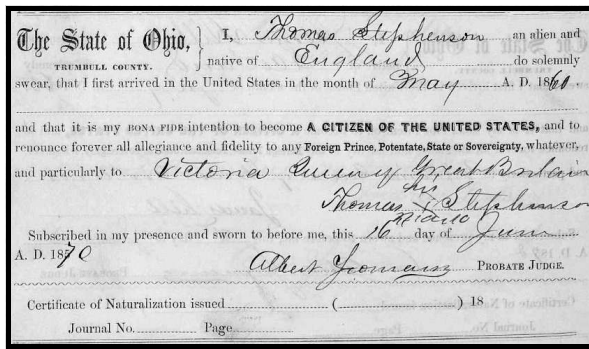 The State of Ohio, } I, Thomas Stephenson an alien and
TRUMBULL COUNTY. native of England do solemnly
swear, that I first arrived in the United States in the month of May A. D. 1860.
and that it is my BONA FIDE intention to become A CITIZEN OF THE UNITED STATES, and to
renounce forever all allegiance and fidelity to any Foreign Prince, Potentate, State or Sovereignty, whatever,
and particularly to Victoria Queen of Great Britain
his
Thomas X Stephenson
mark
Subscribed in my presence and sworn to before me, this 16 day of June
A. D. 1870
Albert Yeomans PROBATE JUDGE.
Certificate of Naturalization issued ( ) 18
Journal No. Page